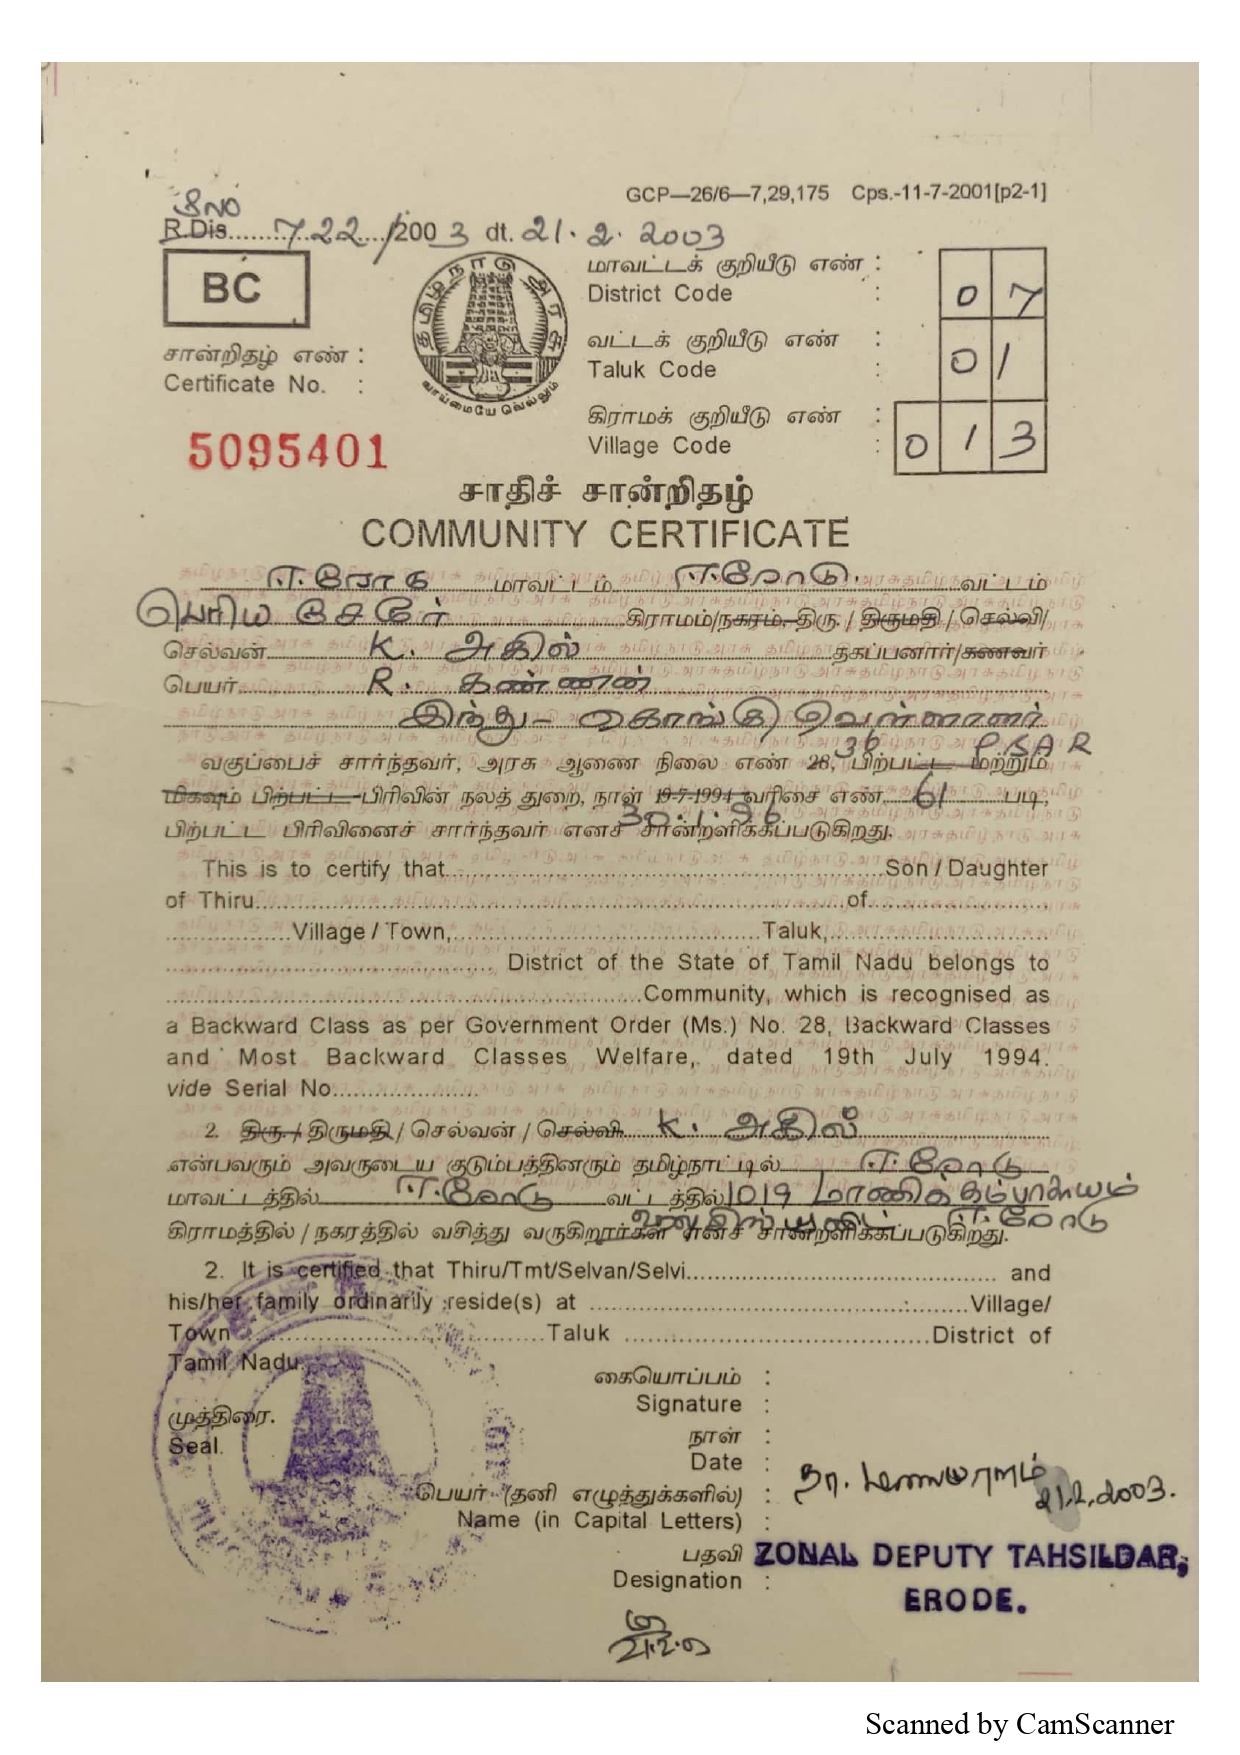 GCP—26/6—7,29,175 Cps.-11-7-2001[p2-1]
SNO
R.Dis.......722..../2003 dt. 21.2.2003
BC
தமிழ்நாடு அரசு
வாய்மையே வெல்லும்
மாவட்டக் குறியீடு எண் :
District Code : 07
வட்டக் குறியீடு எண் :
Taluk Code : 01
கிராமக் குறியீடு எண் :
Village Code : 013
சான்றிதழ் எண் :
Certificate No. :
5095401
சாதிச் சான்றிதழ்
COMMUNITY CERTIFICATE
ஈரோடு மாவட்டம் ஈரோடு வட்டம்
பெரிய சேமூர் கிராமம்/நகரம், திரு. / திருமதி / செல்வி/
செல்வன் K. அகில் தகப்பனார்/கணவர்
பெயர் R. கண்ணன்
இந்து - கொங்கு வெள்ளாளர்
வகுப்பைச் சார்ந்தவர், அரசு ஆணை நிலை எண் 28, 36 பிற்பட்ட மற்றும் P&AR
மிகவும் பிற்பட்ட பிரிவின் நலத் துறை, நாள் 19-7-1994 வரிசை எண் 61 படி,
30.1.96
பிற்பட்ட பிரிவினைச் சார்ந்தவர் எனச் சான்றளிக்கப்படுகிறது.
This is to certify that..........Son / Daughter
of Thiru..........of..........
..........Village / Town,..........Taluk,..........
.......... District of the State of Tamil Nadu belongs to
..........Community, which is recognised as
a Backward Class as per Government Order (Ms.) No. 28, Backward Classes
and Most Backward Classes Welfare, dated 19th July 1994.
vide Serial No..........
2. திரு. / திருமதி / செல்வன் / செல்வி K. அகில்
என்பவரும் அவருடைய குடும்பத்தினரும் தமிழ்நாட்டில் ஈரோடு
மாவட்டத்தில் ஈரோடு வட்டத்தில் 1019 மாணிக்கம்பாளையம்
ஹவுசிங் யூனிட் ஈரோடு
கிராமத்தில் / நகரத்தில் வசித்து வருகிறார்கள் எனச் சான்றளிக்கப்படுகிறது.
2. It is certified that Thiru/Tmt/Selvan/Selvi.......... and
his/her family ordinarily reside(s) at ..........Village/
Town ..........Taluk ..........District of
Tamil Nadu.
கையொப்பம் :
Signature :
முத்திரை.
Seal.
நாள் :
Date :
21.2.2003.
பெயர் (தனி எழுத்துக்களில்) :
Name (in Capital Letters) :
பதவி
Designation :
ZONAL DEPUTY TAHSILDAR,
ERODE.
Scanned by CamScanner